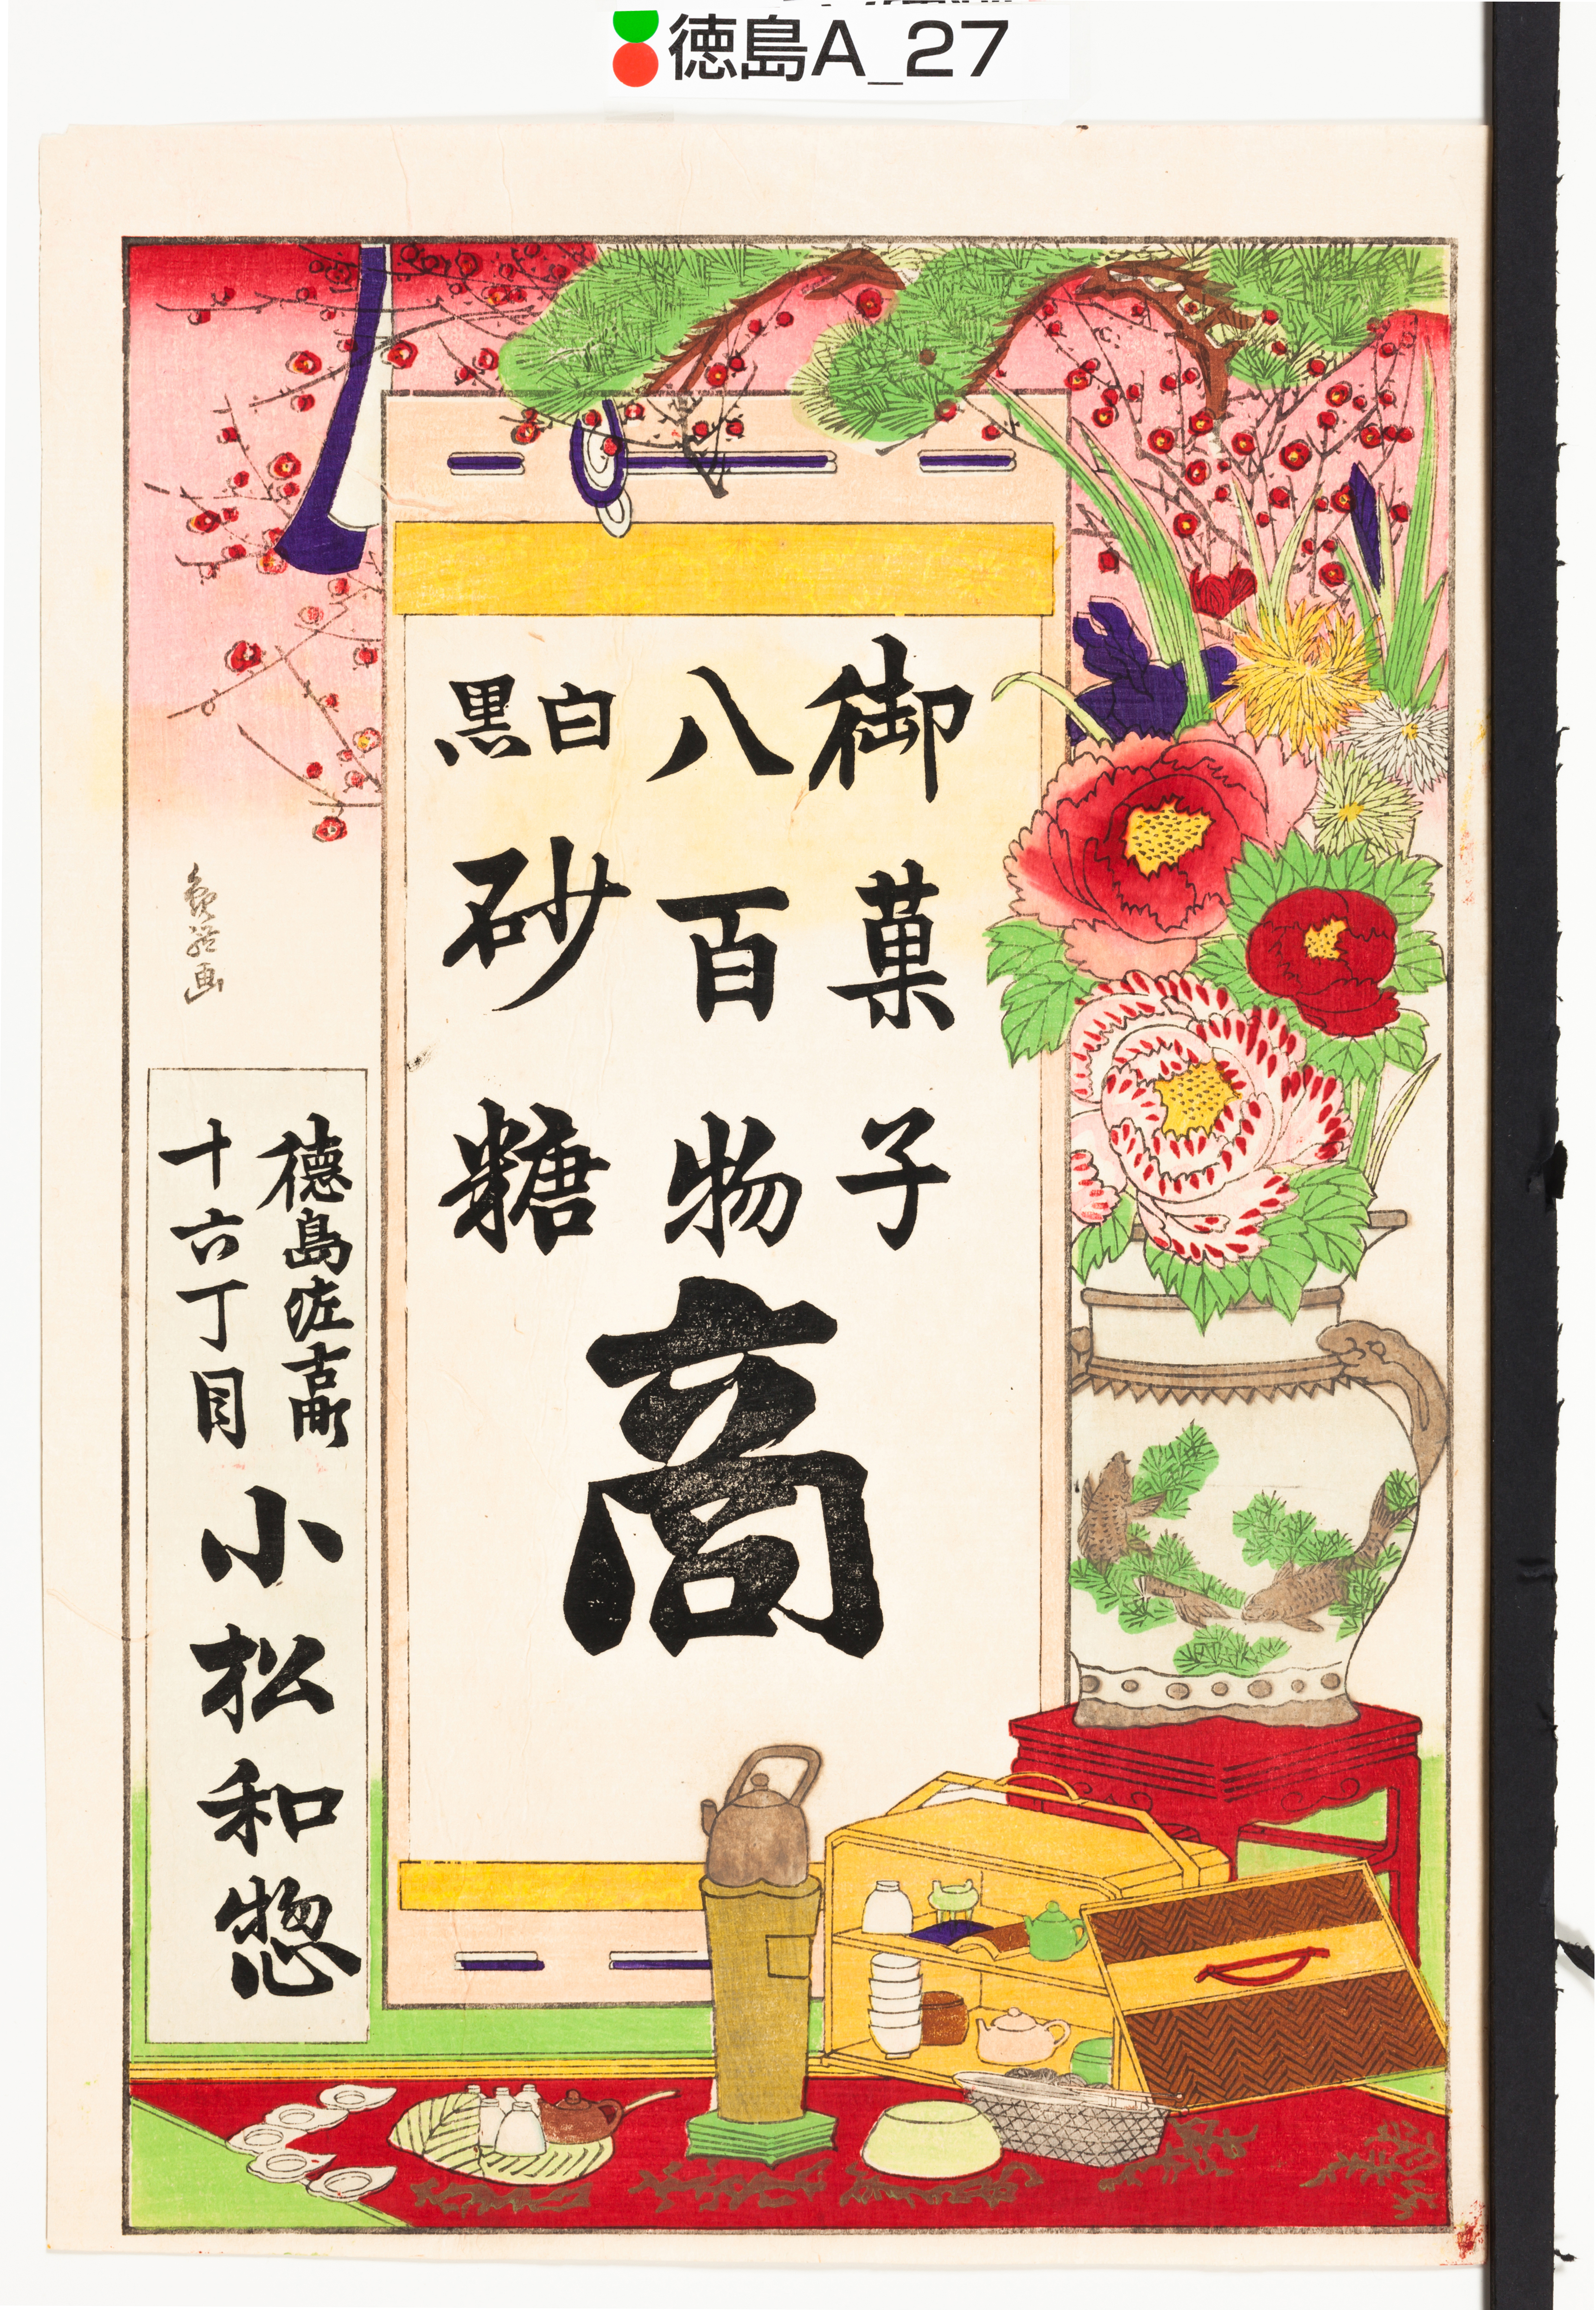 徳島A_27
御菓子
八百物
白黒砂糖
商
徳島佐古町
十六丁目
小松和惣
画